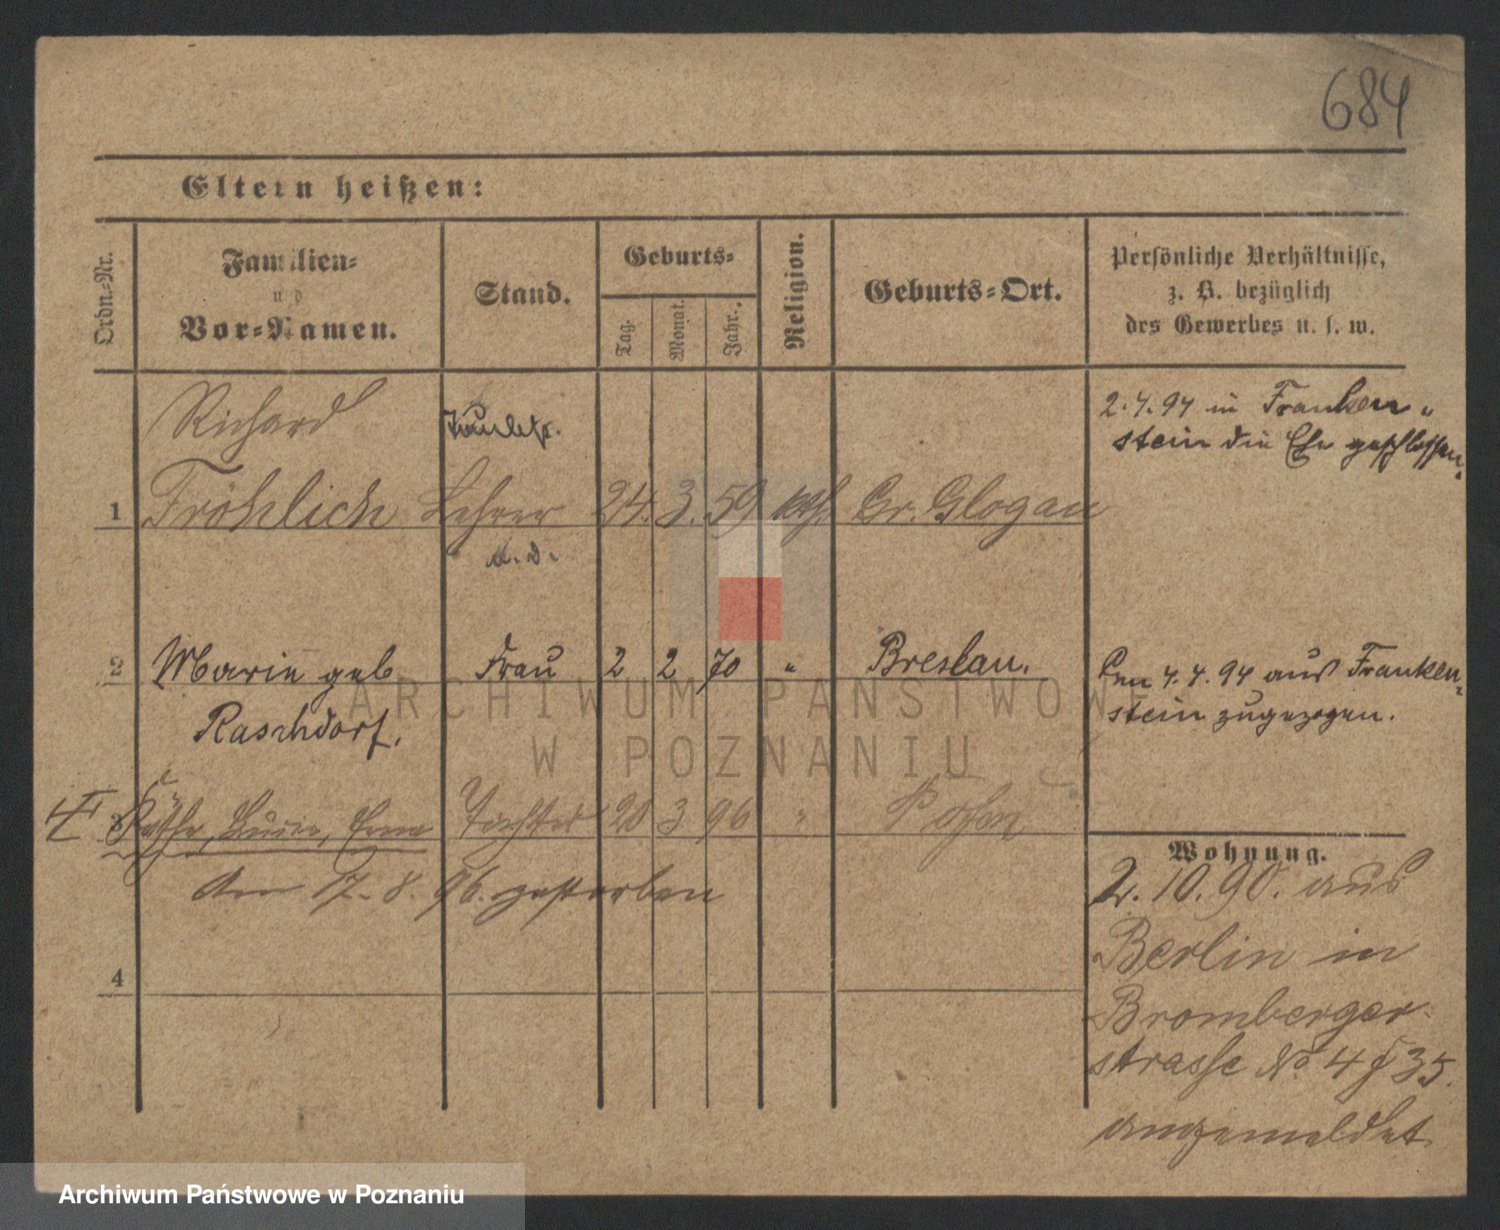 684
Eltern heißen:
Ordn.-Nr.
Familien-
und
Vor-Namen.
Stand.
Geburts-
Tag.
Monat.
Jahr.
Religion.
Geburts-Ort.
Persönliche Verhältnisse,
z. B. bezüglich
des Gewerbes u. s. w.
Richard
1 Fröhlich Lehrer 24. 3. 59 kth. Gr. Glogau
a. D.
2. 4. 94 in Franken-
stein die Ehe geschlossen.
2 Marie geb Frau 2 2 70 " Breslau.
Raschdorf.
Den 4. 4. 94 aus Franken-
stein zugezogen.
3 Käthe, Luise, Erna Tochter 20 3 96 " Posen
Am 17. 8. 96. gestorben
4
Wohnung.
2. 10. 90. aus
Berlin in
Bromberger-
strasse No 4 35.
angemeldet
ARCHIWUM PAŃSTWOWE
W POZNANIU
Archiwum Państwowe w Poznaniu